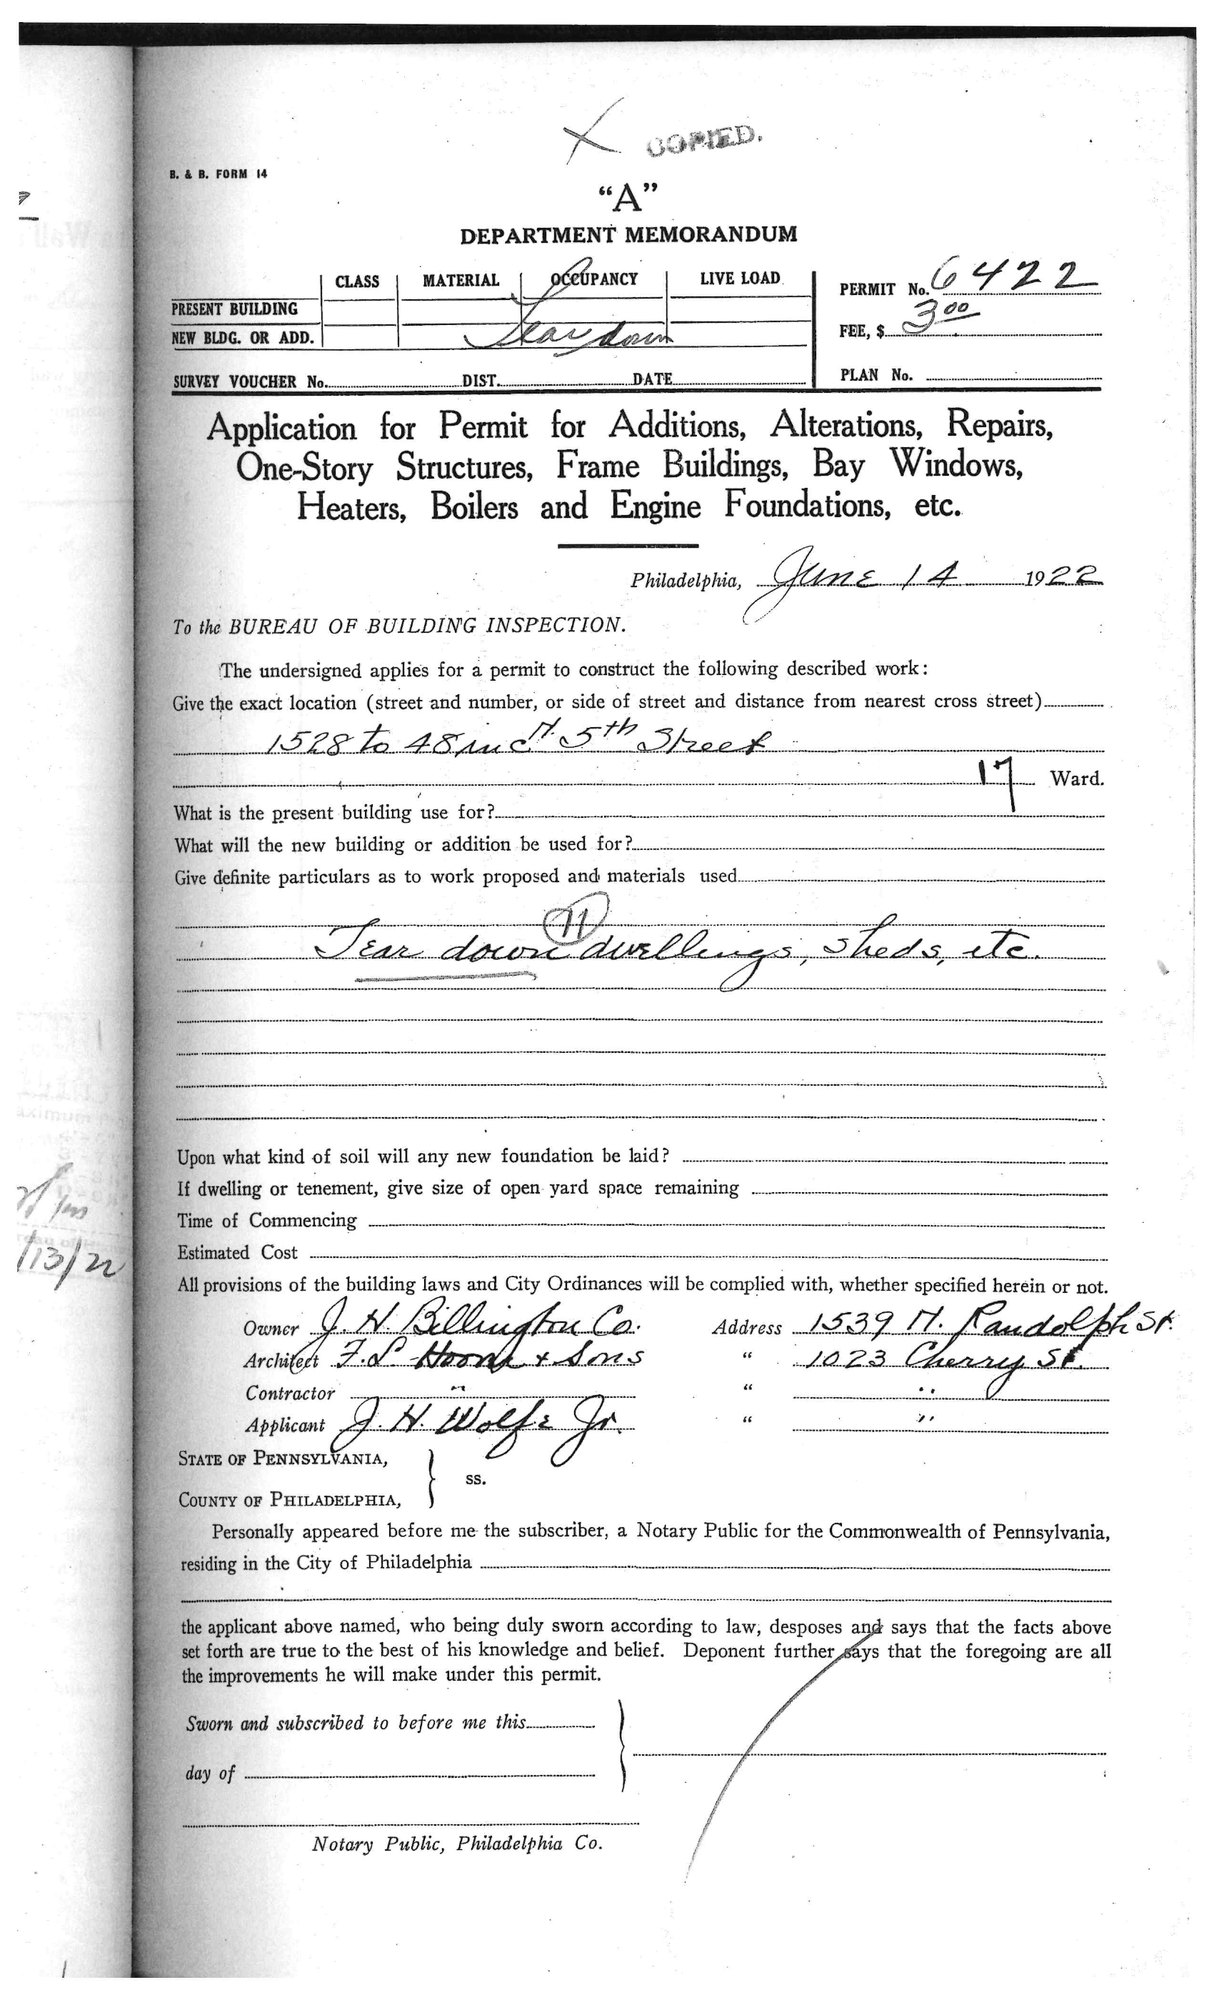 COPIED.
B. & B. FORM 14
"A"
DEPARTMENT MEMORANDUM
CLASS MATERIAL OCCUPANCY LIVE LOAD
PERMIT No. 6422
PRESENT BUILDING
NEW BLDG. OR ADD. Tear down
FEE, $ 3.00
SURVEY VOUCHER No. DIST. DATE
PLAN No.
Application for Permit for Additions, Alterations, Repairs,
One-Story Structures, Frame Buildings, Bay Windows,
Heaters, Boilers and Engine Foundations, etc.
Philadelphia, June 14 1922
To the BUREAU OF BUILDING INSPECTION.
The undersigned applies for a permit to construct the following described work:
Give the exact location (street and number, or side of street and distance from nearest cross street)
1528 to 48 inc N. 5th Street
17 Ward.
What is the present building use for?
What will the new building or addition be used for?
Give definite particulars as to work proposed and materials used
11
Tear down dwellings, sheds, etc.
Upon what kind of soil will any new foundation be laid?
If dwelling or tenement, give size of open yard space remaining
Time of Commencing
Estimated Cost
/13/22
All provisions of the building laws and City Ordinances will be complied with, whether specified herein or not.
Owner J. H. Billington Co. Address 1539 N. Randolph St.
Architect F. L. & Sons " 1023 Cherry St.
Contractor " " "
Applicant J. H. Wolfe Jr. " "
STATE OF PENNSYLVANIA,
ss.
COUNTY OF PHILADELPHIA,
Personally appeared before me the subscriber, a Notary Public for the Commonwealth of Pennsylvania,
residing in the City of Philadelphia
the applicant above named, who being duly sworn according to law, desposes and says that the facts above
set forth are true to the best of his knowledge and belief. Deponent further says that the foregoing are all
the improvements he will make under this permit.
Sworn and subscribed to before me this
day of
Notary Public, Philadelphia Co.